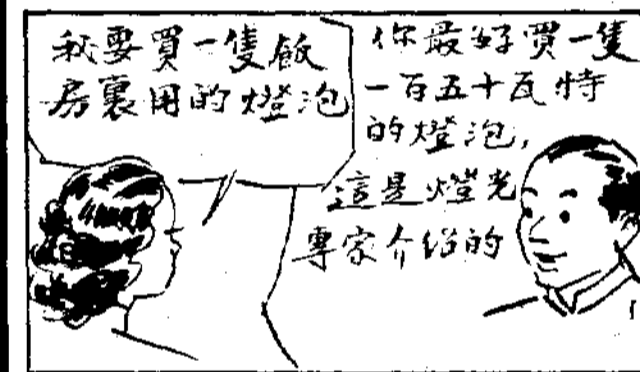 我要買一隻飯
房裏用的燈泡
你最好買一隻
一百五十瓦特
的燈泡,
這是燈光
專家介紹的